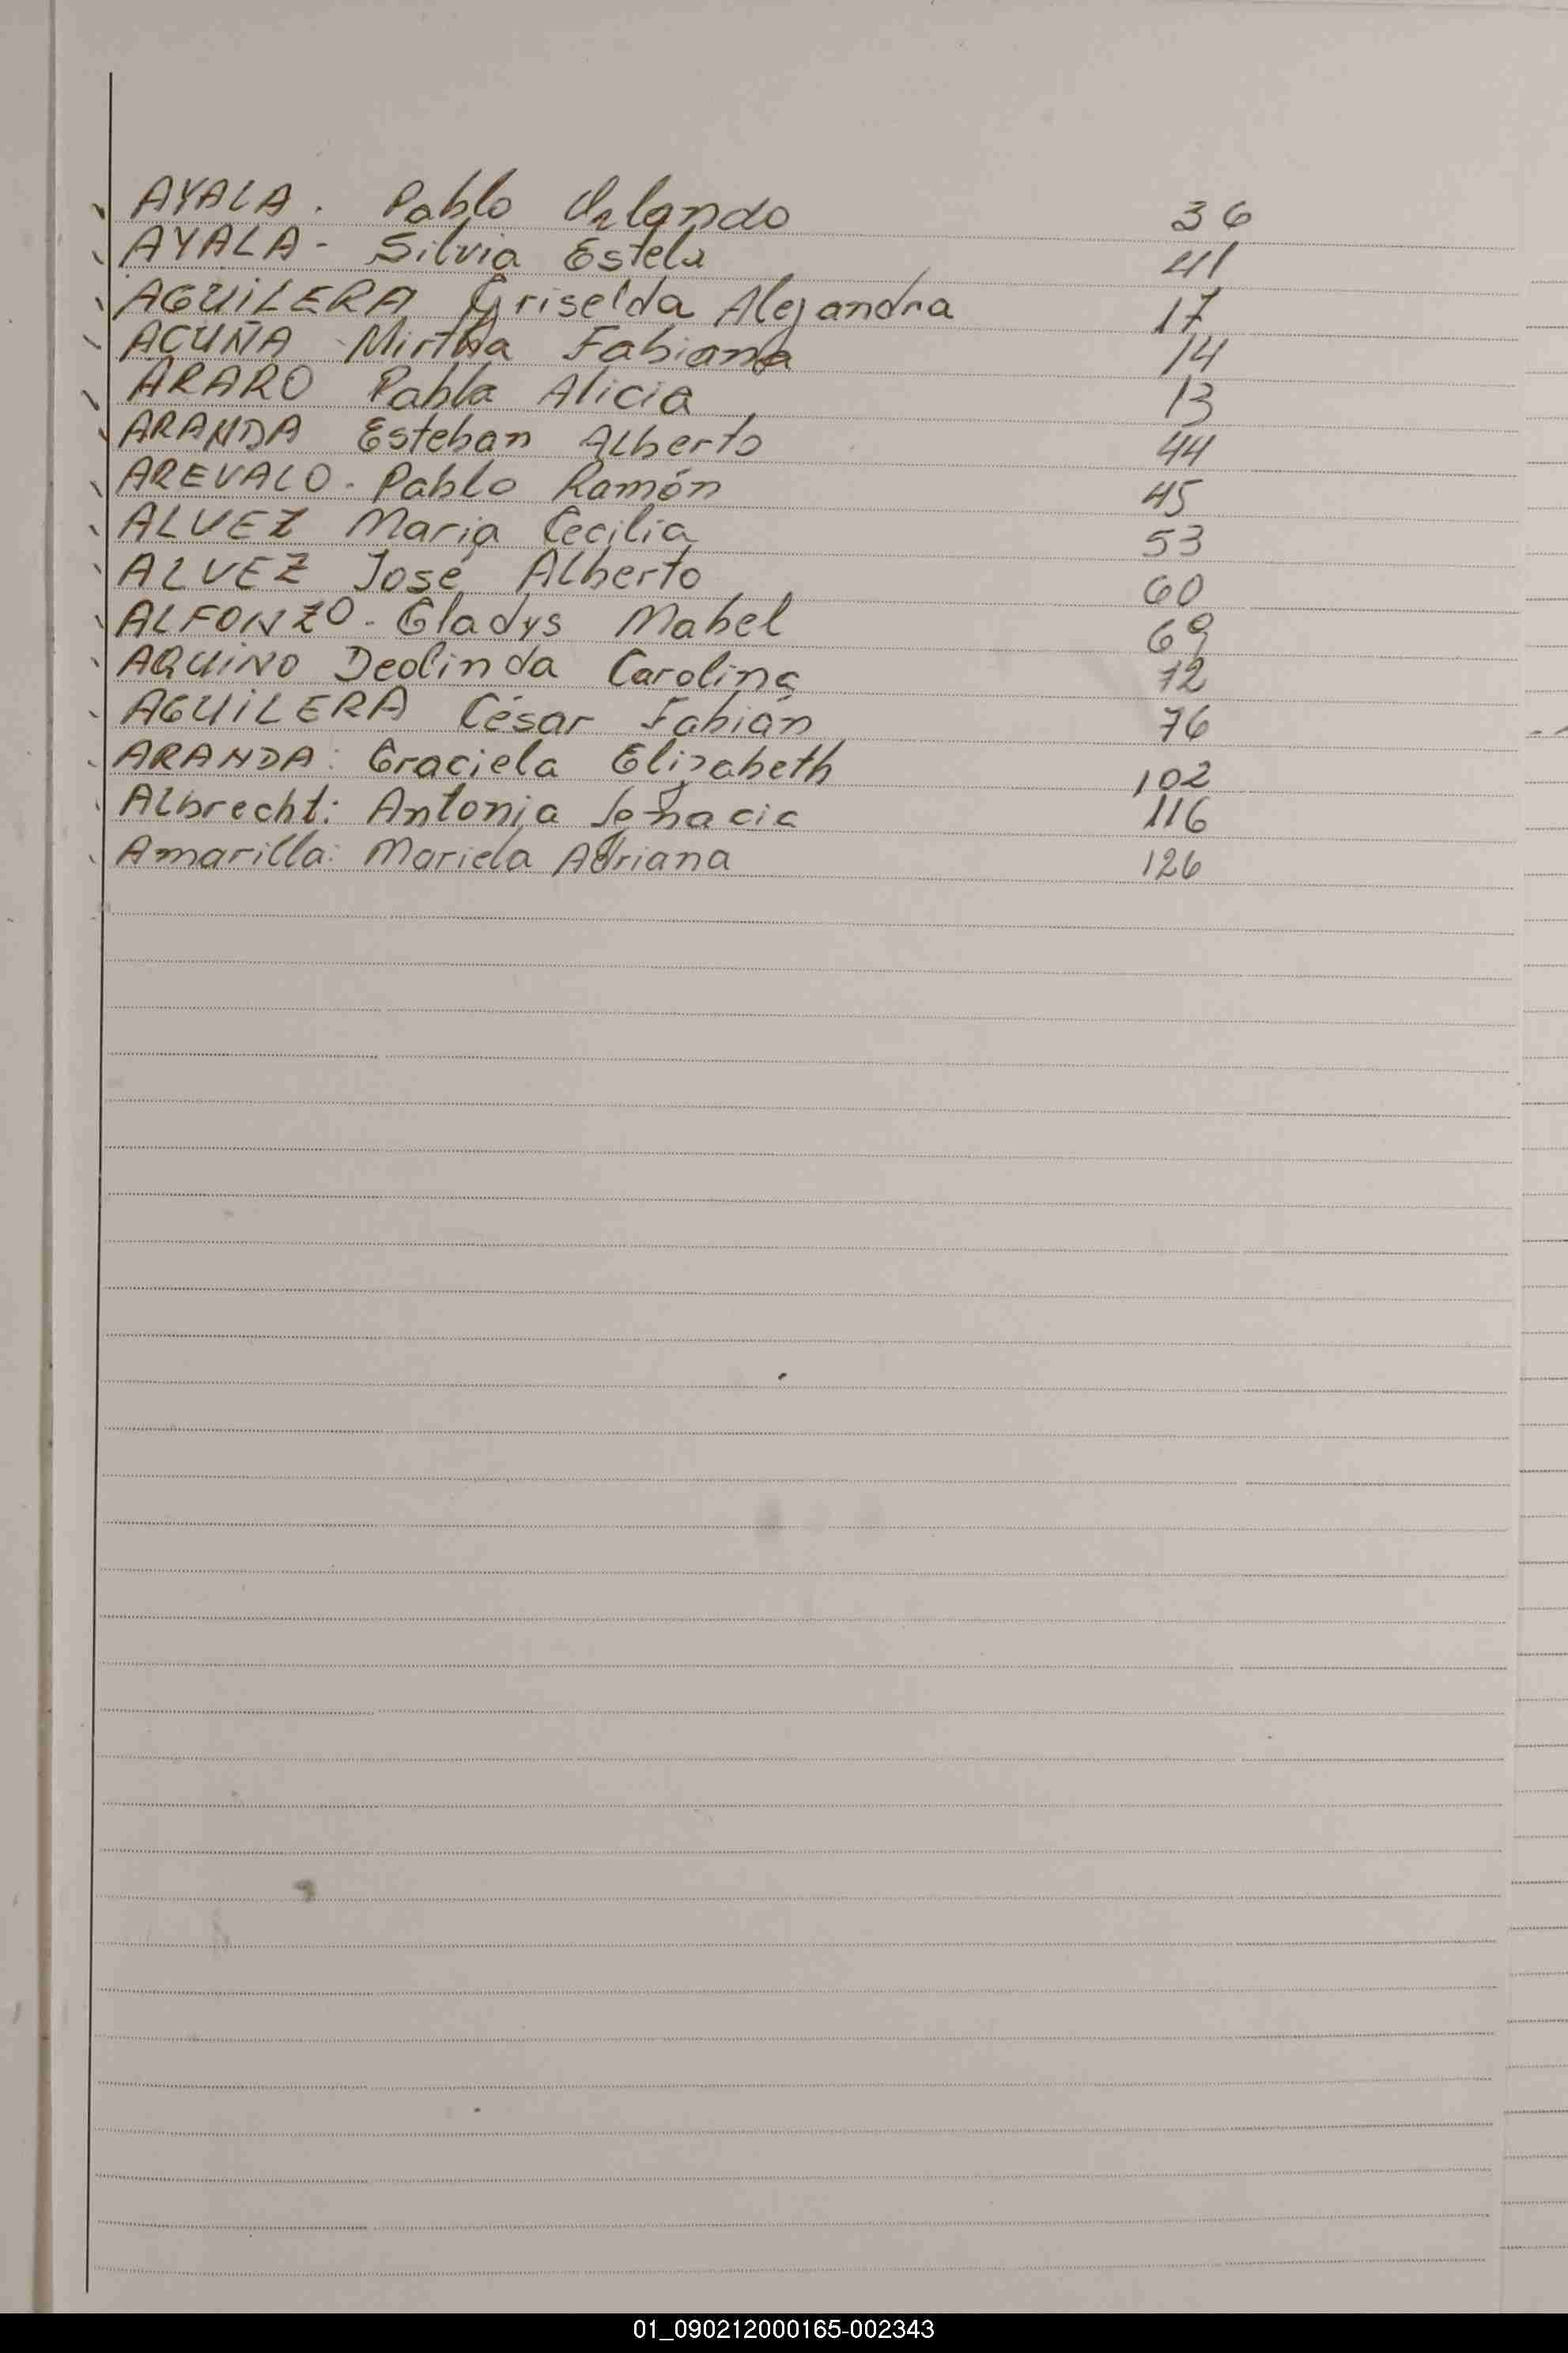 AYALA. Pablo Orlando 36
AYALA- Silvia Estela 41
AGUiLERA Griselda Alejandra 17
ACUÑA Mirtha Fabiana 14
ARARO Pabla Alicia 13
ARANDA Esteban Alberto 44
AREVALO. Pablo Ramón 45
ALVEZ Maria Cecilia 53
ALVEZ José Alberto 60
ALFONZO. Gladys Mabel 69
AQUiNO Deolinda Carolina 72
AGUiLERA César Fabián 76
ARANDA: Graciela Elizabeth 102
Albrecht: Antonia Ignacia 116
Amarilla: Mariela Adriana 126
01_090212000165-002343